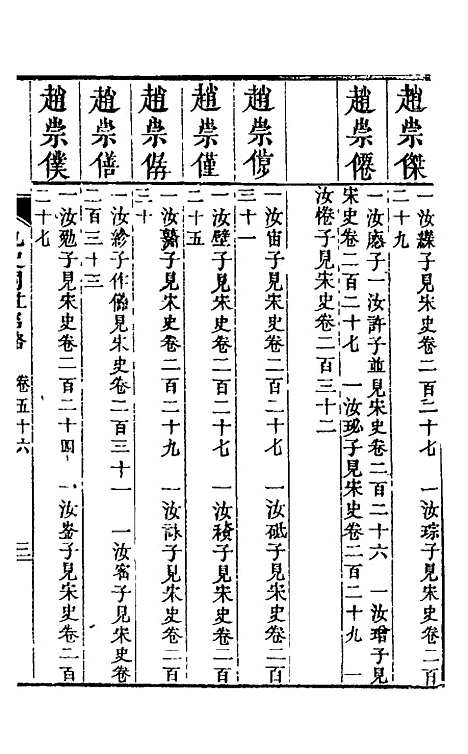 趙崇傑
一汝㸁子見宋史卷二百二十七　一汝琮子見宋史卷二百
二十九
趙崇僊
一汝㤿子一汝許子並見宋史卷二百二十六　一汝璔子見
宋史卷二百二十七　一汝珌子見宋史卷二百二十九　一
汝惓子見宋史卷二百三十二
趙崇傍
一汝宙子見宋史卷二百二十七　一汝砥子見宋史卷二百
三十一
趙崇僅
一汝壁子見宋史卷二百二十七　一汝積子見宋史卷二百
二十五
趙崇僢
一汝子見宋史卷二百二十九　一汝子見宋史卷二百
三十
趙崇僐
一汝紾子作儀見宋史卷二百三十一　一汝密子見宋史卷
二百三十三
趙崇僕
一汝勉子見宋史卷二百二十四　一汝崟子見宋史卷二百
二十七
九史同姓名略　卷五十六　三